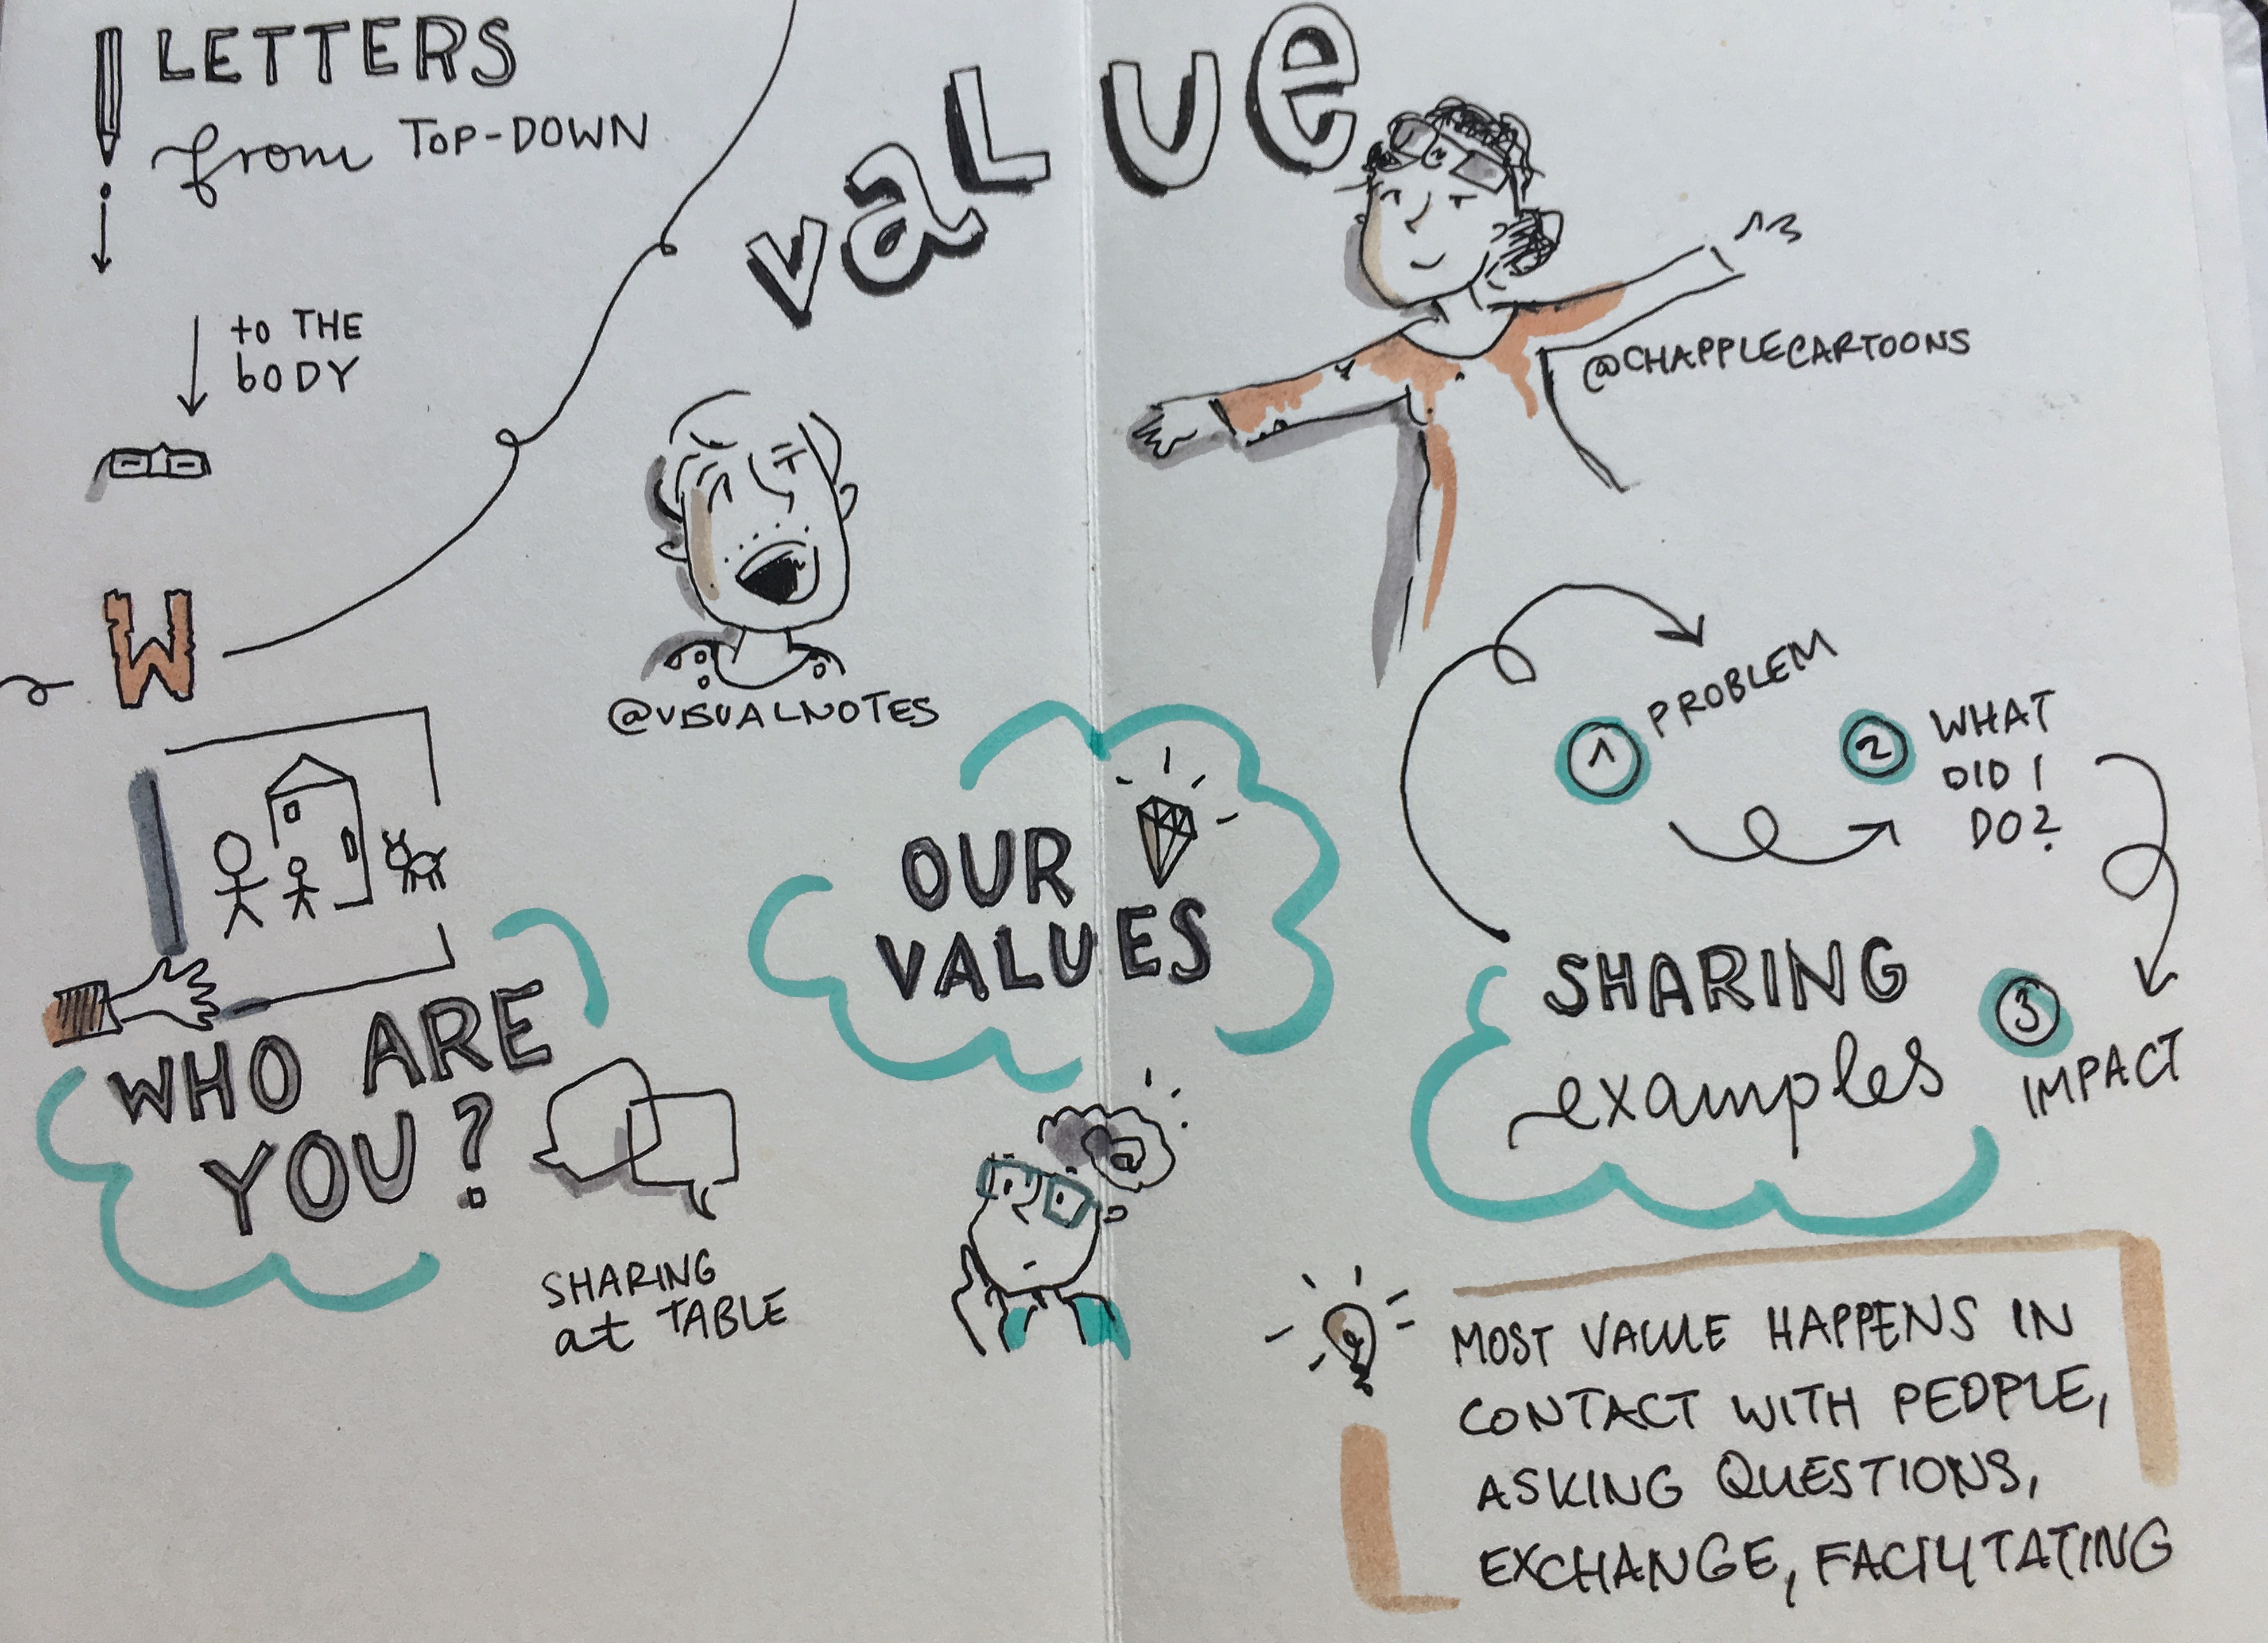 LETTERS
from TOP-DOWN
to THE
BODY
W
vaLUe
@CHAPPLECARTOONS
@VISUALNOTES
WHO ARE
YOU?
SHARING
at TABLE
OUR
VALUES
1 PROBLEM
2 WHAT
DID I
DO?
3
IMPACT
SHARING
examples
MOST VALUE HAPPENS IN
CONTACT WITH PEOPLE,
ASKING QUESTIONS,
EXCHANGE, FACILITATING